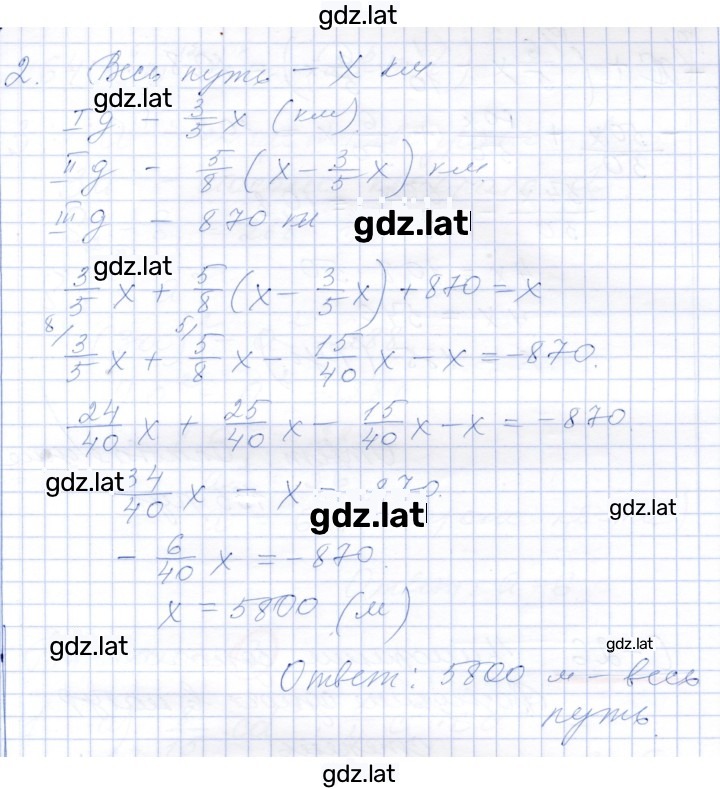 gdz.lat
2. Весь путь – x км
gdz.lat
I д – 3/5 x (км)
II д – 5/8 (x – 3/5 x) км.
III д – 870 км
gdz.lat
gdz.lat
3/5 x + 5/8 (x – 3/5 x) + 870 = x
8/ 3/5 x + 5/ 5/8 x – 15/40 x – x = –870.
24/40 x + 25/40 x – 15/40 x – x = –870.
gdz.lat
34/40 x – x
gdz.lat
gdz.lat
– 6/40 x = –870.
x = 5800 (м)
gdz.lat
gdz.lat
Ответ: 5800 м – весь
путь.
gdz.lat